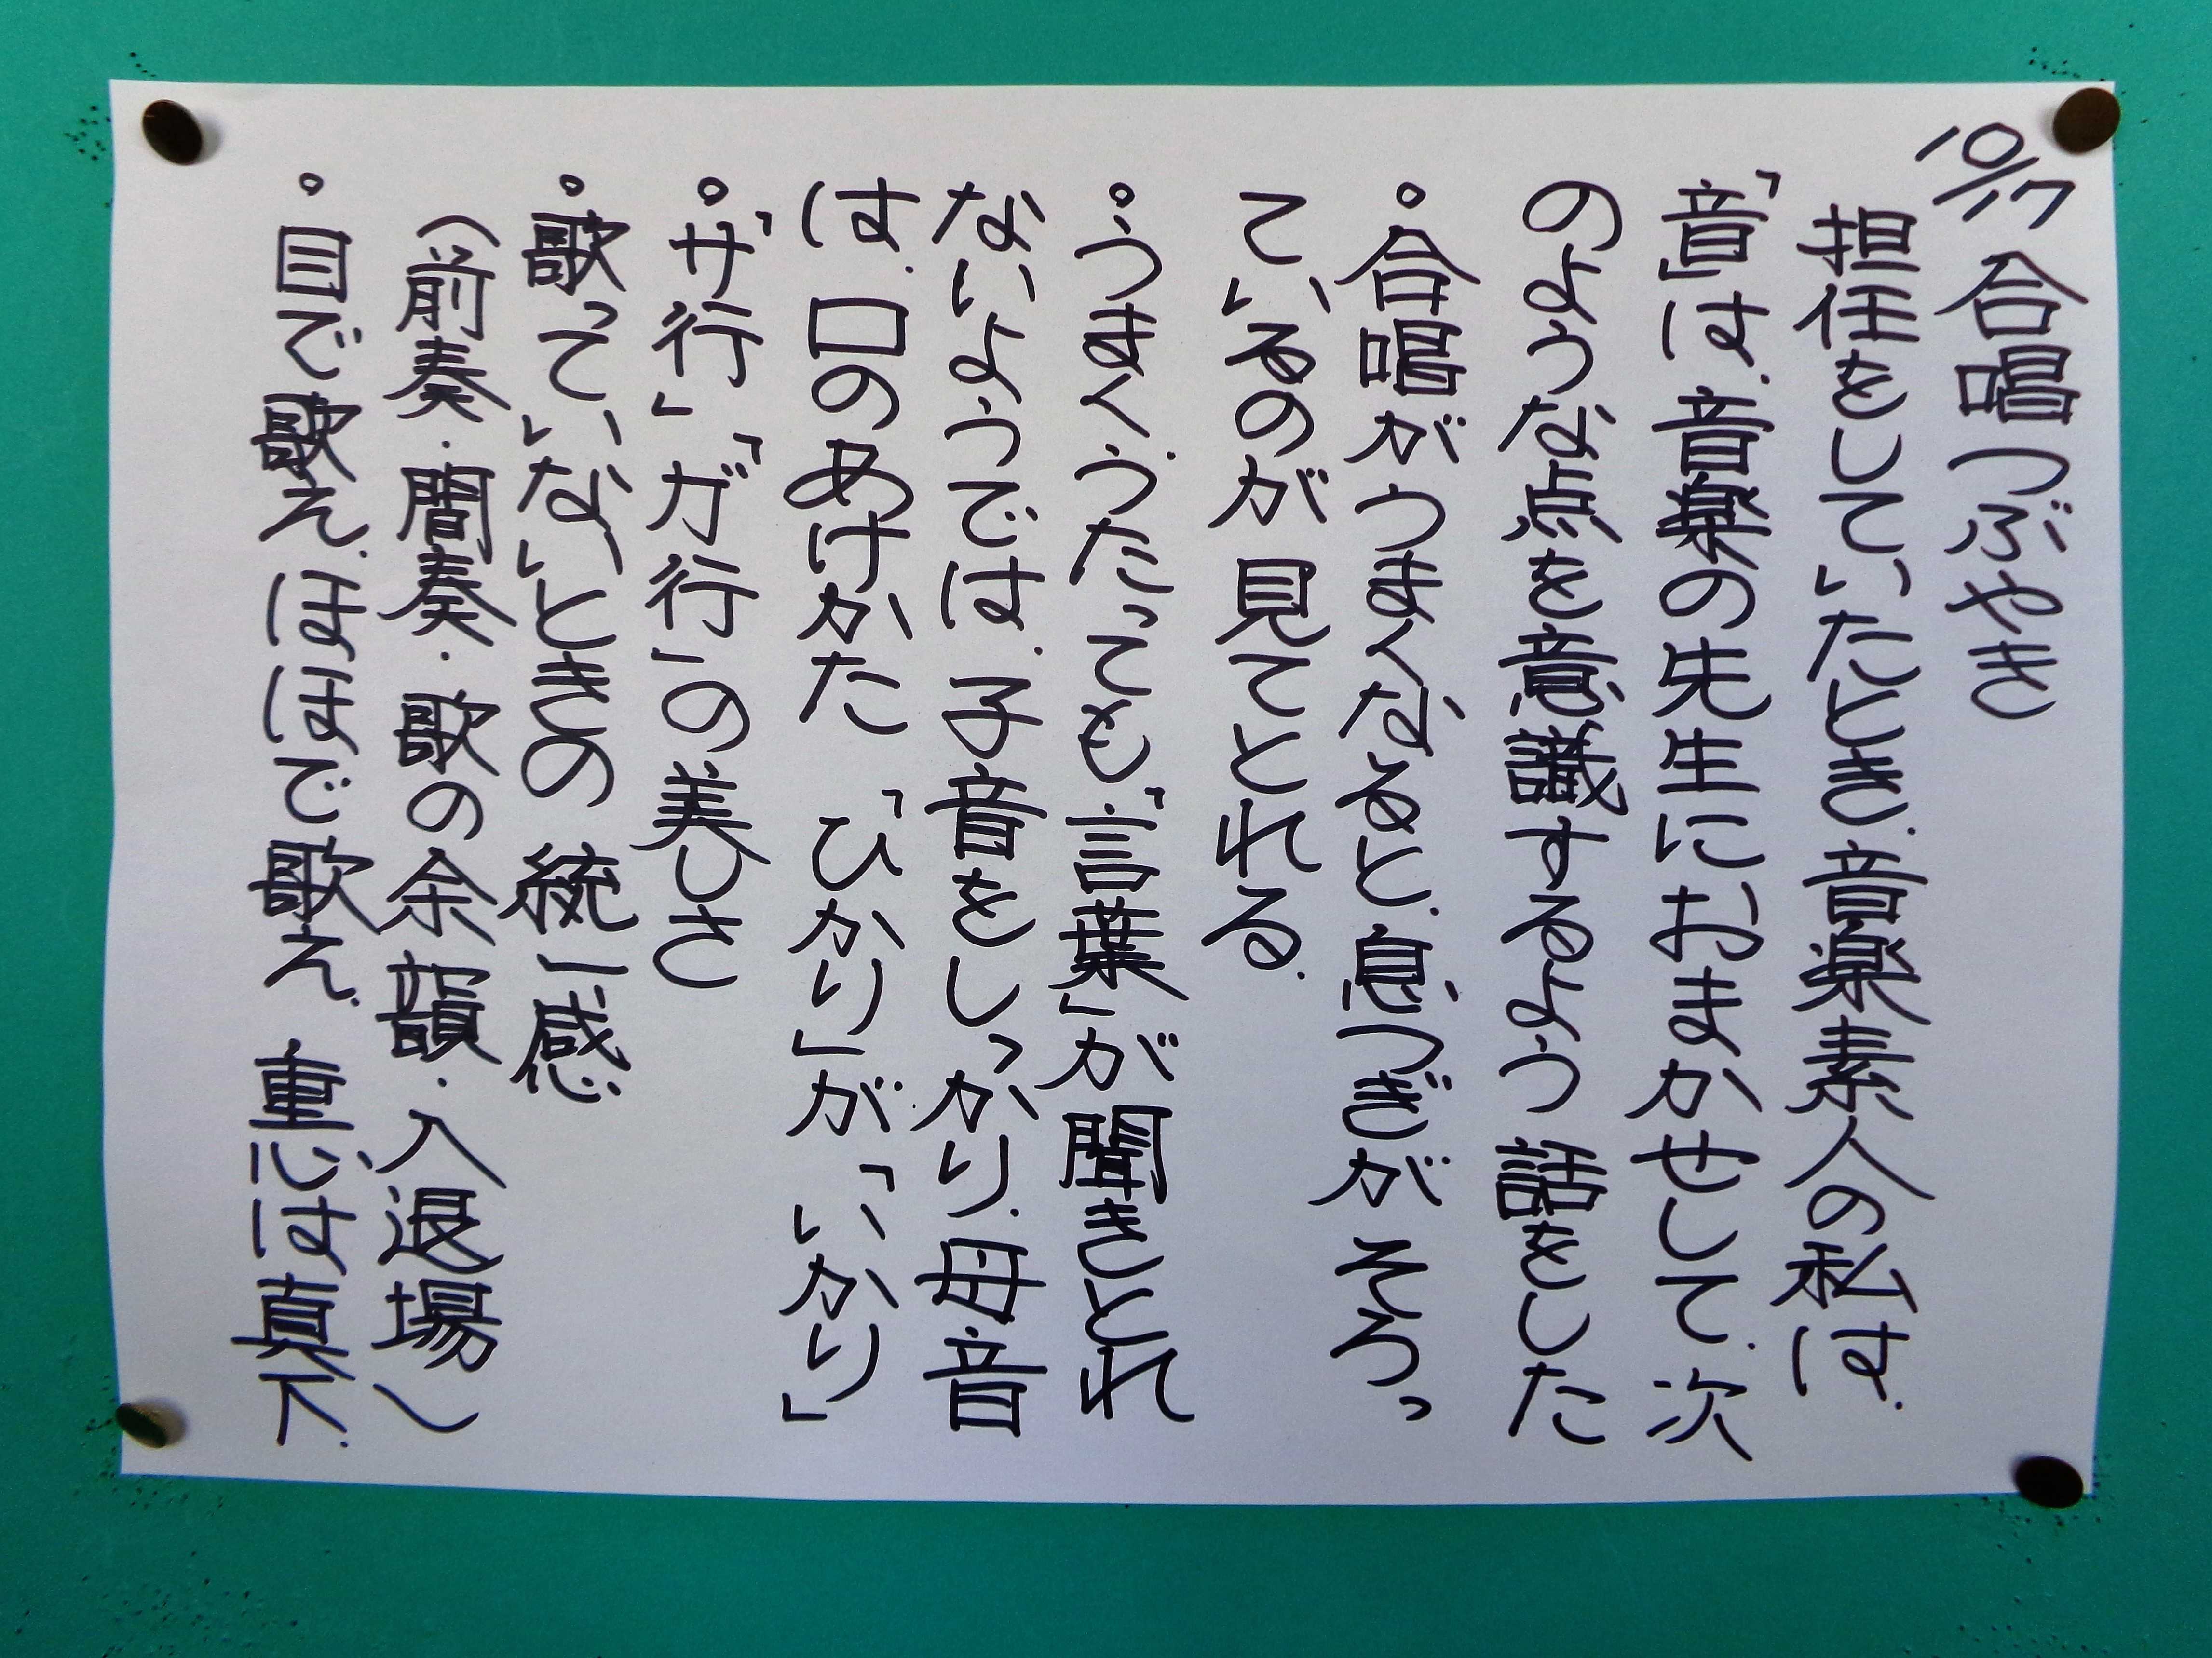 10/17 合唱つぶやき
担任をしていたとき、音楽素人の私は、
「音」は、音楽の先生におまかせして、次
のような点を意識するよう話をした
・合唱がうまくなると、息つぎがそろっ
ているのが見てとれる。
・うまくうたっても、「言葉」が聞きとれ
ないようでは、子音をしっかり、母音
は、口のあけかた 「ひかり」が「いかり」
・「サ行」「ガ行」の美しさ
・歌っていないときの統一感
(前奏・間奏・歌の余韻・入退場)
・目で歌え、ほほで歌え、重心は真下、